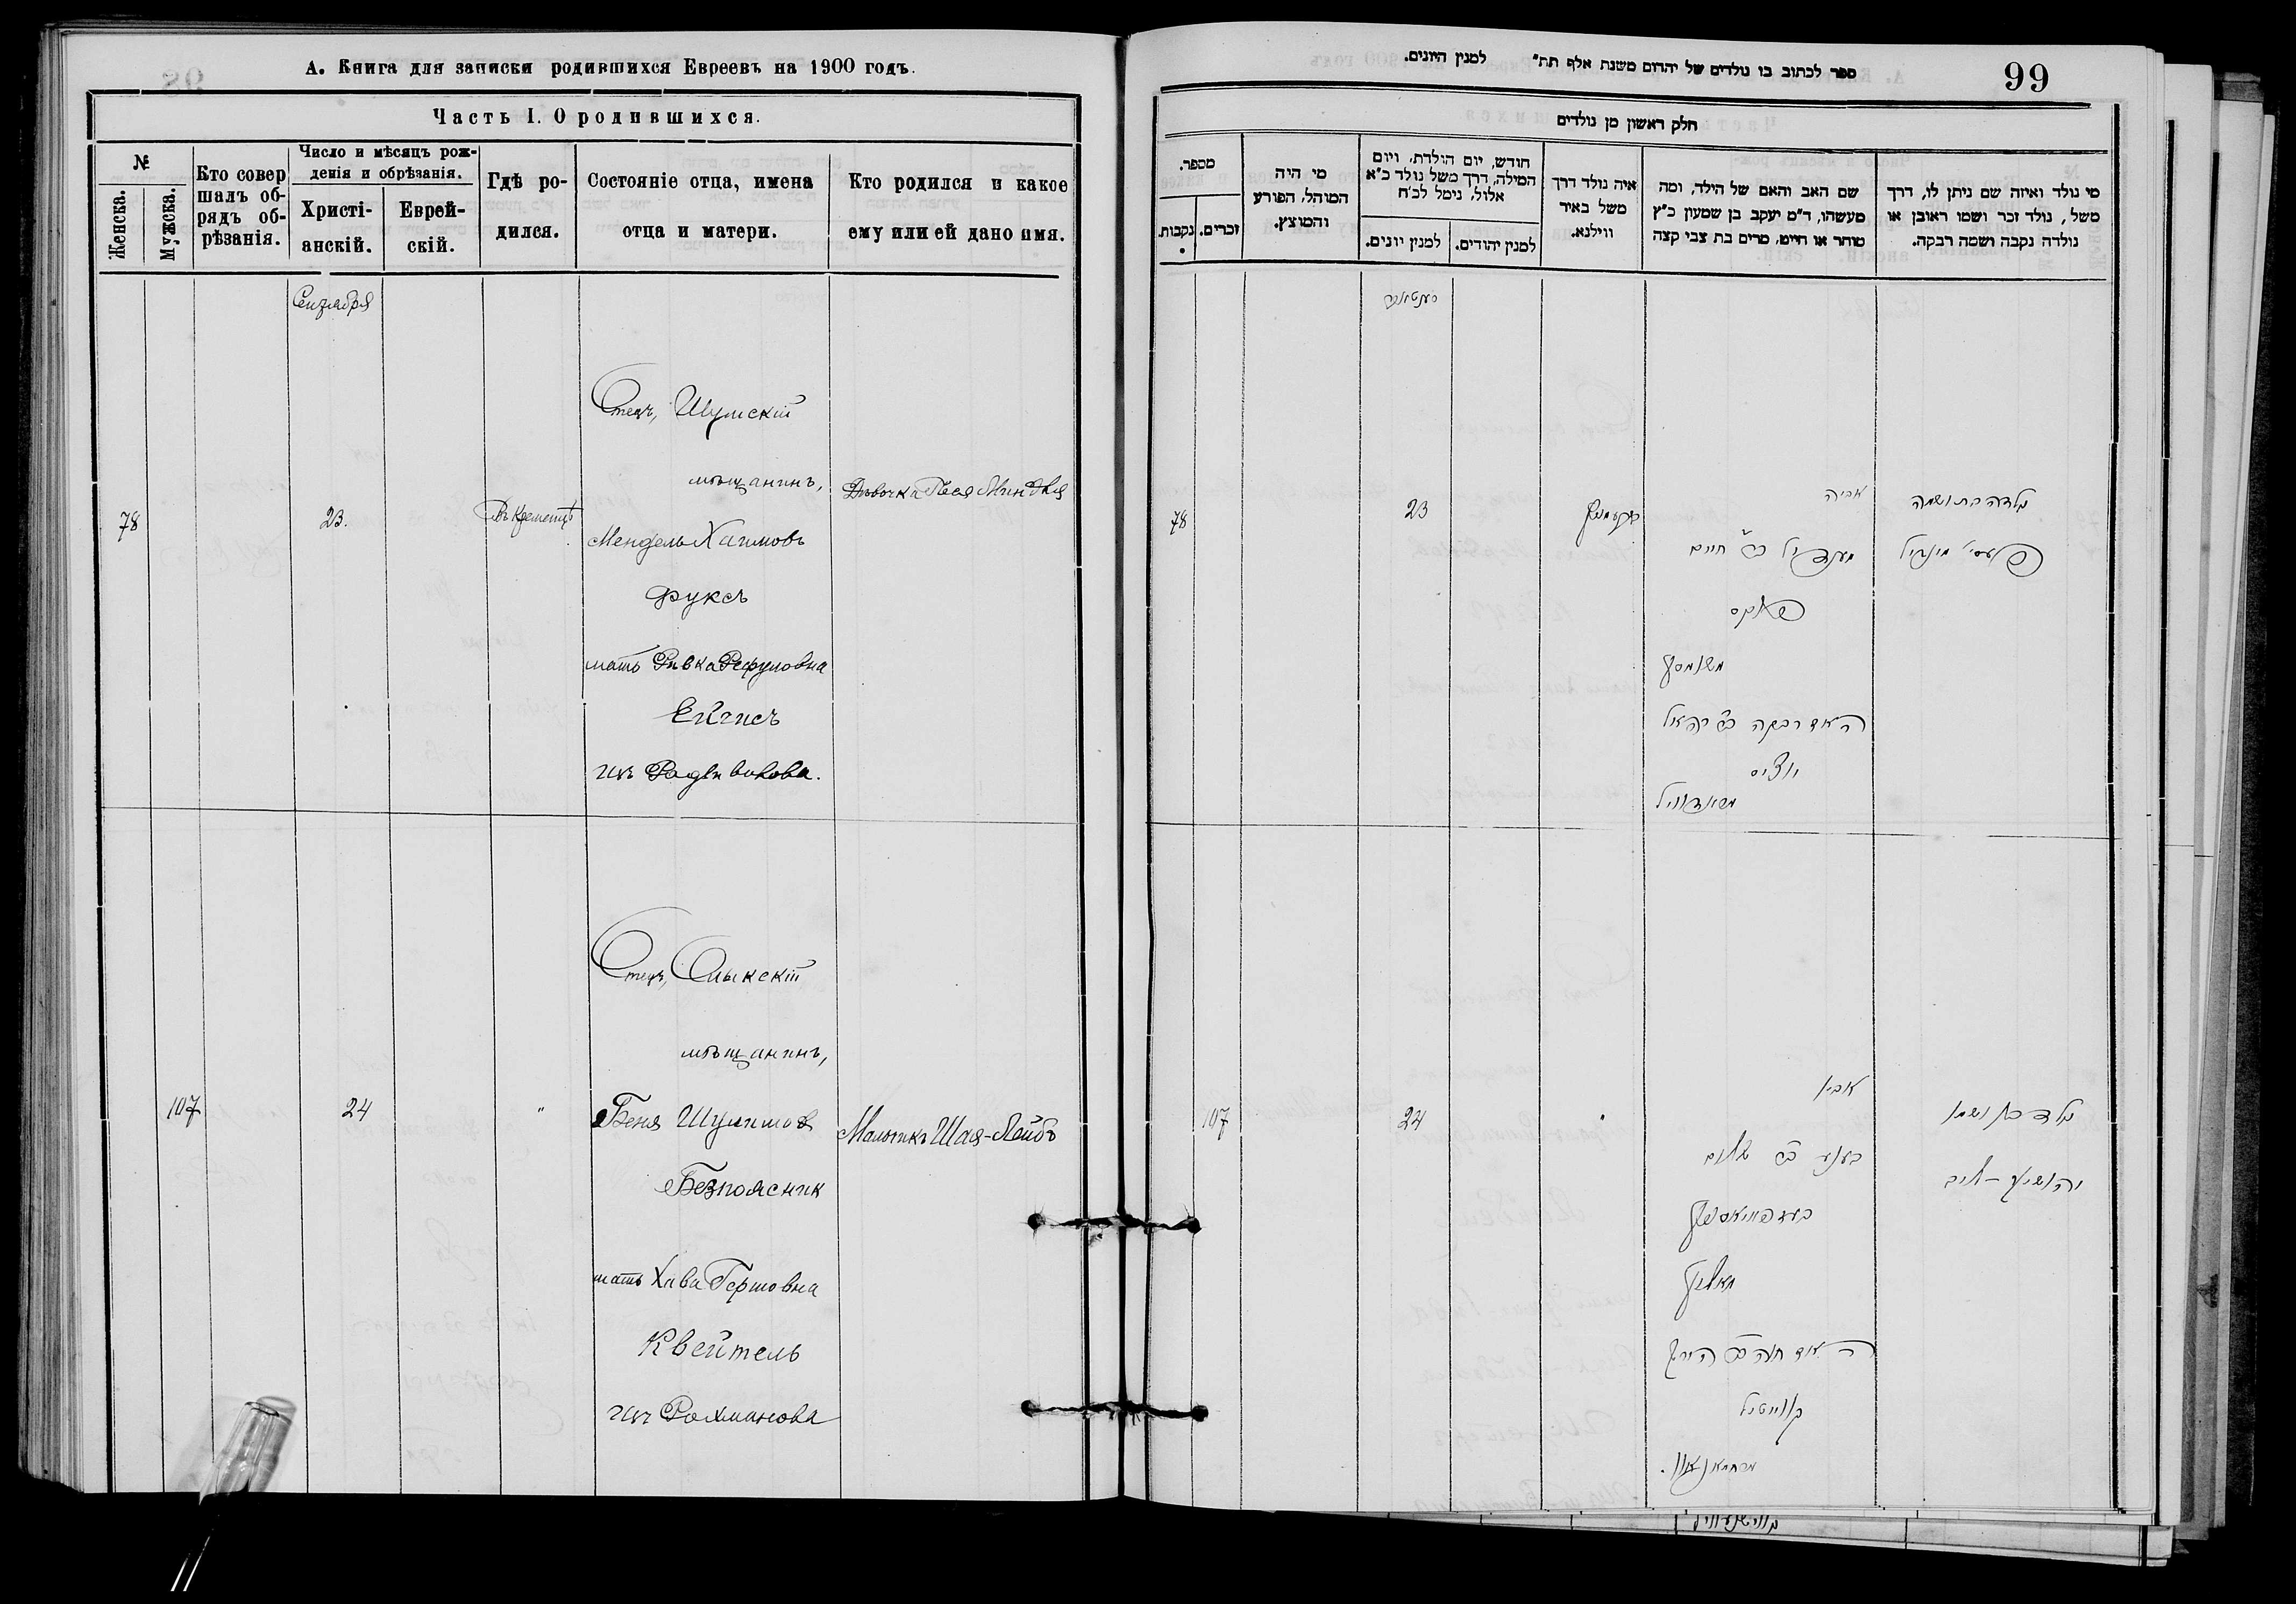 А. Книга для записки родившихся Евреевъ на 1900 годъ.
Часть I. О родившихся.
№
Женска.
Мужска.
Кто совер
шалъ об-
рядъ об-
рѣзанія.
Число и мѣсяцъ рож-
денія и обрѣзанія.
Христі-
анскій.
Еврей-
скій.
Гдѣ ро-
дился.
Состояніе отца, имена
отца и матери.
Кто родился и какое
ему или ей дано имя.
Сентября
78
23.
Въ Кременцѣ
Отецъ, Шумскій
мѣщанинъ,
Мендель Хаимовъ
Фуксъ
мать Ривка Рефуловна
из Радзивилова.
Дѣвочка Песя Миндля
107
24
"
Отецъ, Олыкский
мѣщанинъ,
Беня Шулимов
Безпоясник
мать Хава Гершовна
Квейтель
из Рахманова
Мальчикъ Шая-Лейбъ
ספר לכתוב בו נולדים של יהודים משנת אלף תת״ למנין היונים.
99
חלק ראשון מן נולדים
מספר.
נקבות.
זכרים.
מי היה
המוהל, הפורע
והמוצץ.
חודש, יום הולדת, ויום
המילה, דרך משל נולד כ״א
אלול, נימל לכ״ח
למנין יונים.
למנין יהודים.
איה נולד דרך
משל באיר
ווילנא.
שם האב והאם של הילד, ומה
מעשהו, ד״מ יעקב בן שמעון כ״ץ
סוחר או חייט, מרים בת צבי קצה
מי נולד ואיזה שם ניתן לו, דרך
משל, נולד זכר ושמו ראובן או
נולדה נקבה ושמה רבקה.
78
23
אביה
מענדיל ב״ר חיים
פוקס
האם רבקה ב״ר רפאל
נולדה בת ושמה
פעסי מינדיל
107
24
אביו
בעני ב״ר שלום
האם חוה ב״ר הירש
קווייטיל
נולד בן ושמו
יהושע-לייב